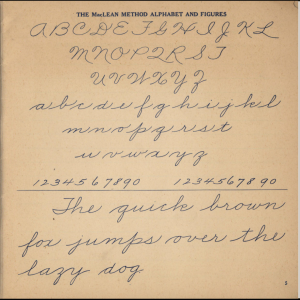 THE MacLEAN METHOD ALPHABET AND FIGURES
A B C D E F G H I J K L
M N O P Q R S T
U V W X Y Z
a b c d e f g h i j k l
m n o p q r s t
u v w x y z
1 2 3 4 5 6 7 8 9 0 1 2 3 4 5 6 7 8 9 0
The quick brown
fox jumps over the
lazy dog